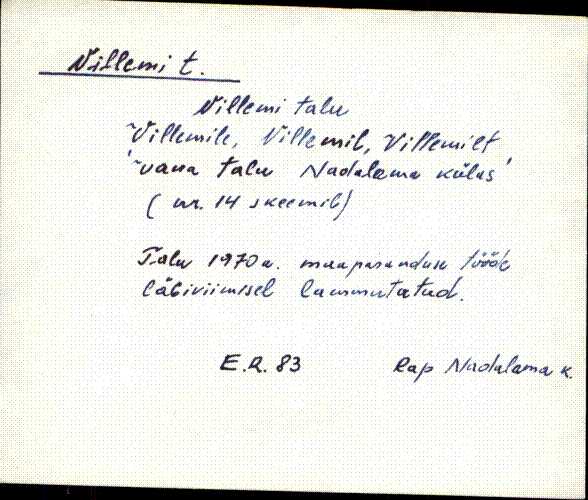 Villemi t.
Villemi talu
'Villemile, Villemil, Villemilt
'vana talu Nadalama külas'
(nr. 14 skeemil)
Talu 1970a. maaparanduse tööde
läbiviimisel lammutatud.
E.R. 83 Rap Nadalama k.